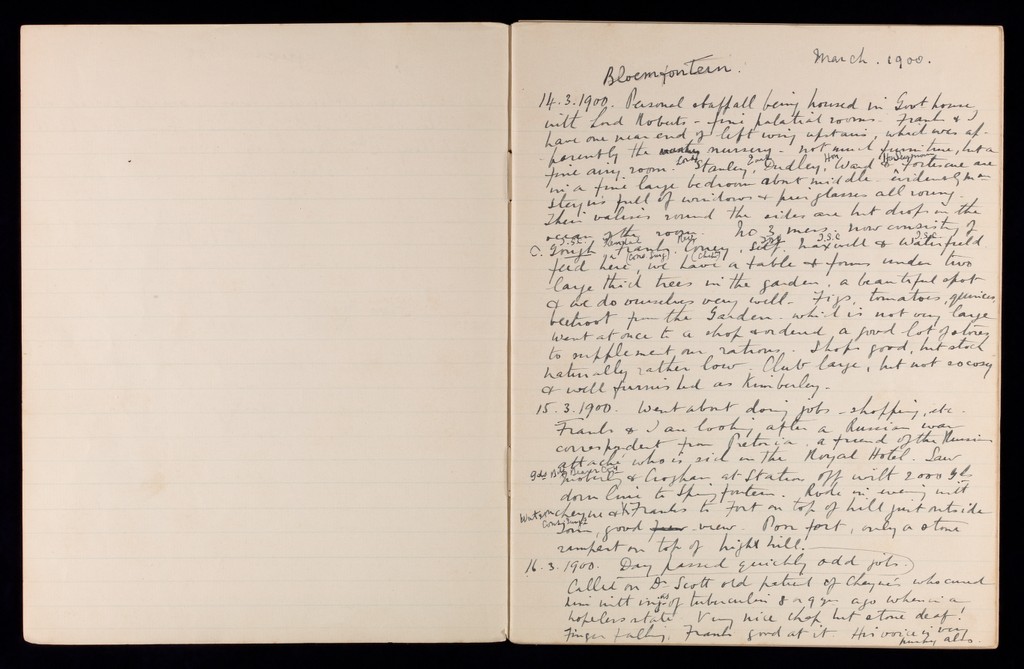 March. 1900.
Bloemfontein.
14.3.1900. Personal staff all being housed in Govt house,
with Lord Roberts - fine palatial rooms. Frank & I
have one near end of left wing upstairs, which was ap-
parently the nursery - not much furniture, but a
fine airy room. Lord Stanley, Lord Dudley, Hon Ward & Fortescue are
in a fine large bedroom about middle evidently
full of windows & pier glasses all round.
Their valises round the sides are but drops in the
ocean of the room. No 3 mess. now consists of
C. Gough, Franks, self, & Waterfield.
feed here, we have a table & forms under two
large thick trees in the garden, a beautiful spot
& we do ourselves very well - Figs, tomatoes, quinces
beetroot from the Garden - which is not very large
Went at once to a shop & ordered a good lot of stores
to supplement our rations. Shops good, but stock
naturally rather low. Club large, but not so cosy
& well furnished as Kimberley.
15.3.1900. Went about doing jobs - shopping, etc.
Franks & I are looking after a Russian war
correspondent from Pretoria, a friend of the Russian
attaché who is sick in the Royal Hotel. Saw
& Croghan at Station off with 2000
down line to Springfontein. Rode in evening with
Watson Cheyne & Franks to Fort on top of hill just outside
Cons. Surg.
Town, good view. Poor fort, only a stone
rampart on top of high hill.
16.3.1900. Day passed quickly odd jobs.
Called on Dr Scott old patient of Cheyne's who cured
him with of tuberculin 8 or 9 yrs ago when in a
hopeless state. Very nice chap but stone deaf!
Finger talking, Franks good at it. His voice is very
also.